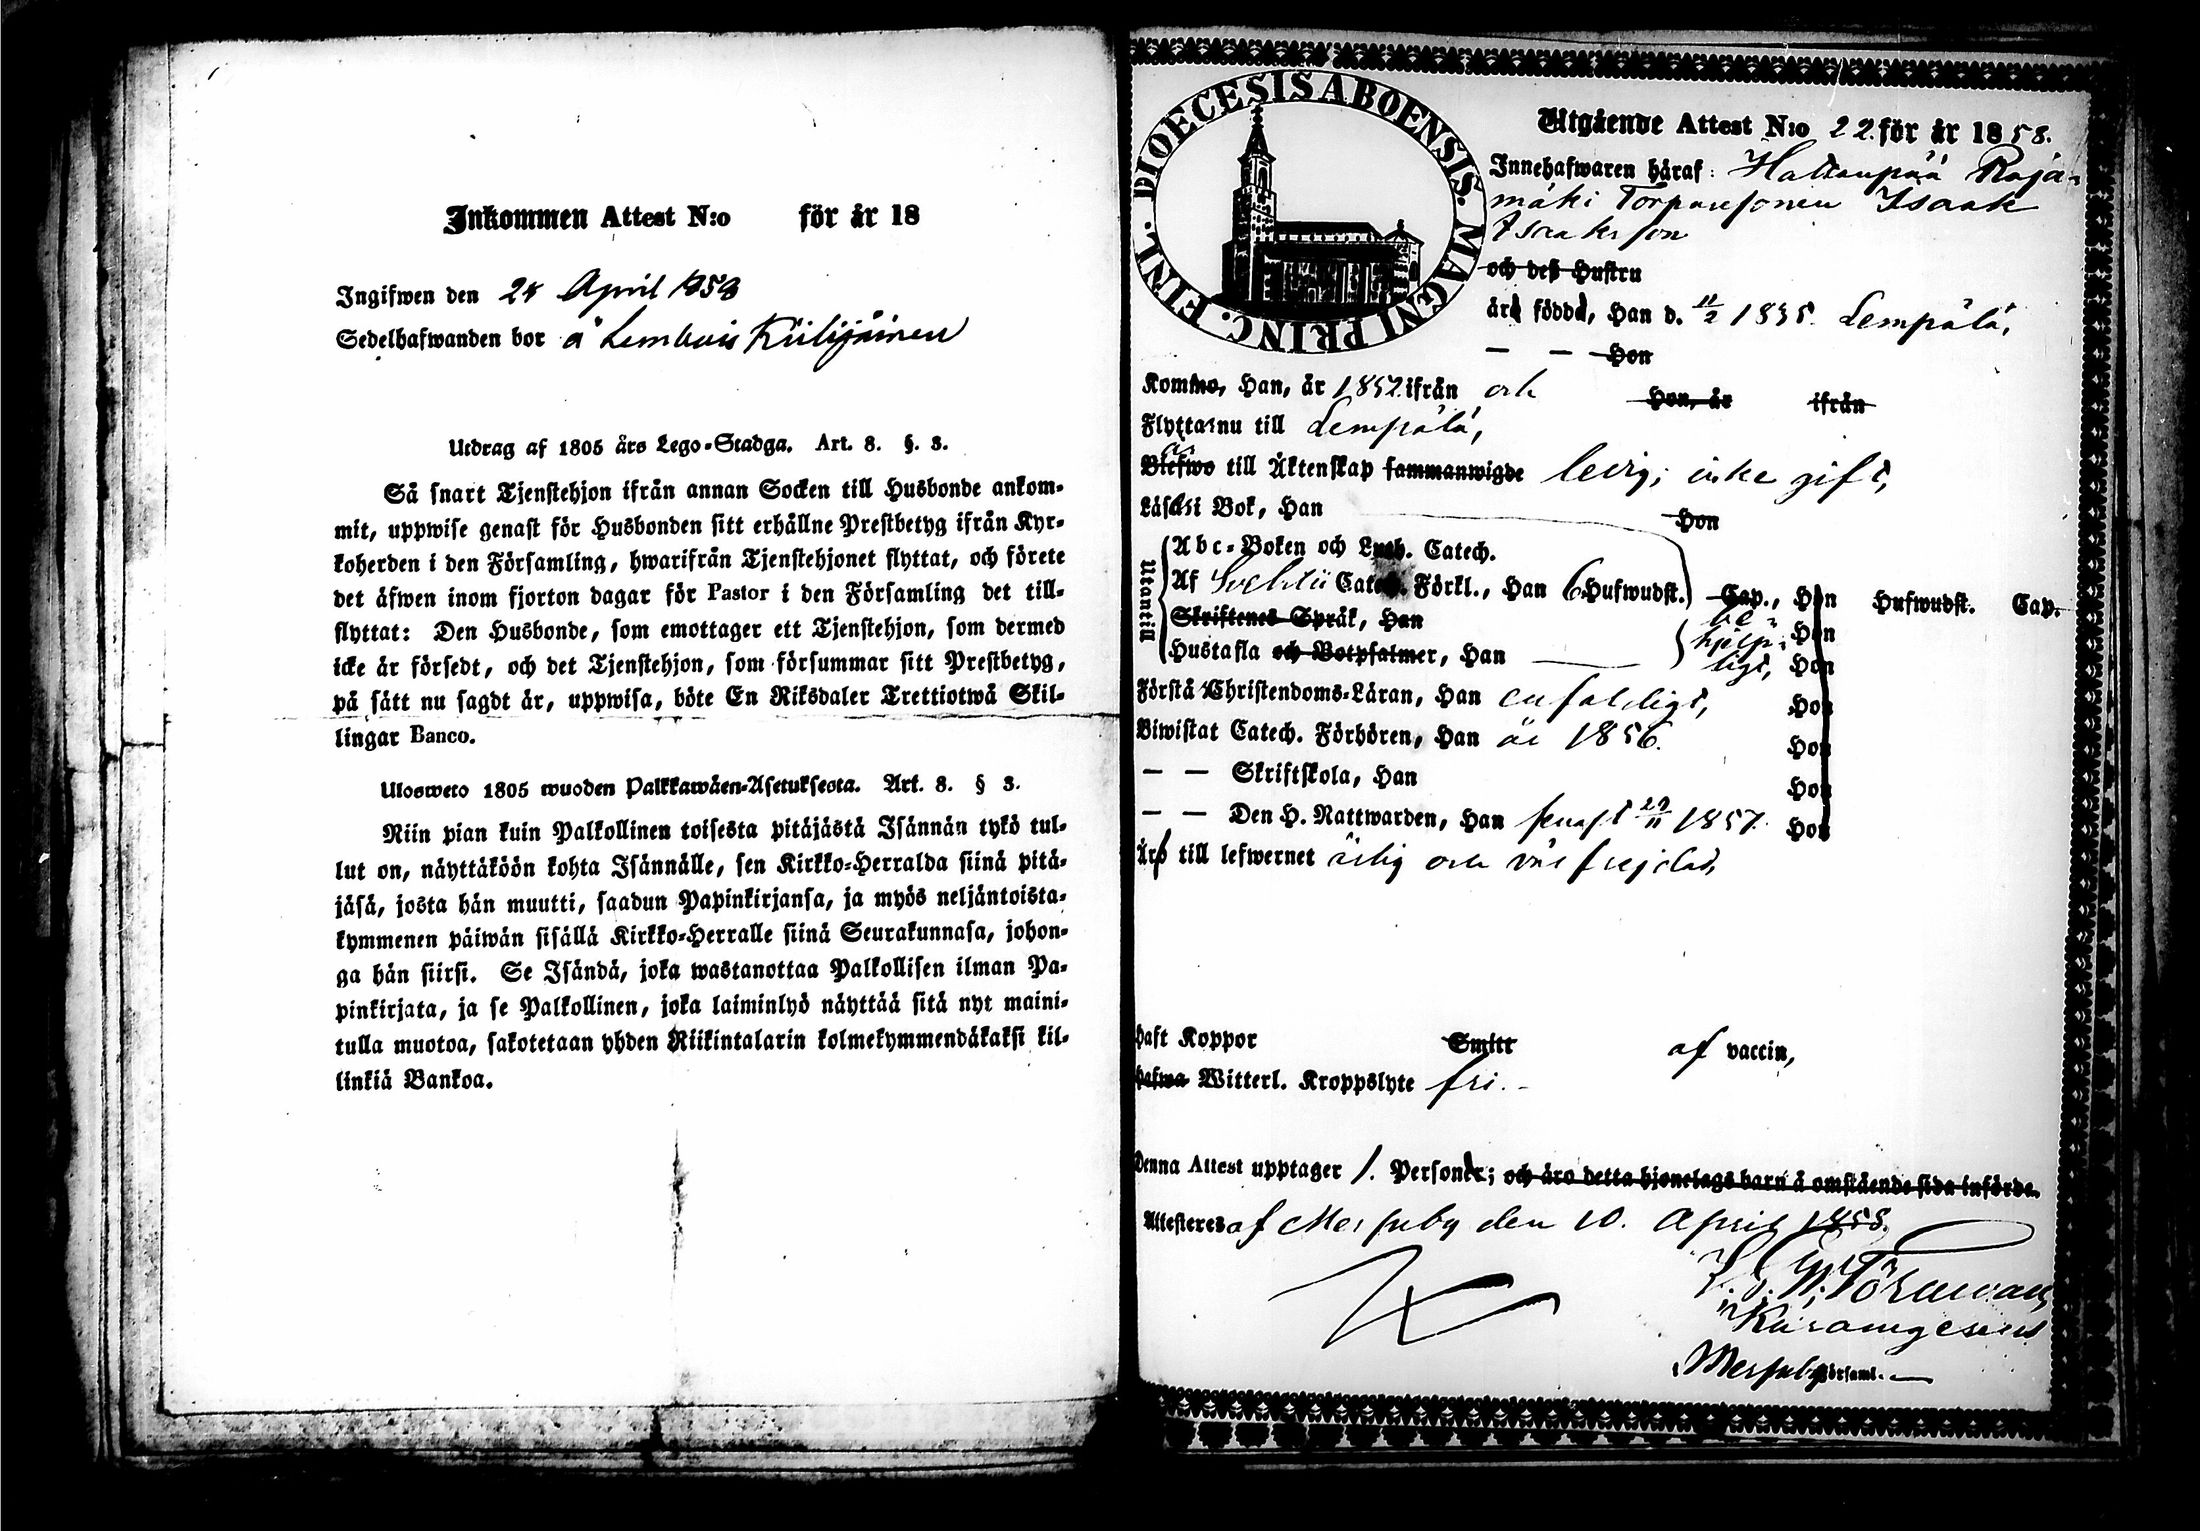 Inkommen Attest N:o för år 18
Ingifwen den 24 April 1858
Sedelhafwanden bor å Lembois Kiilijäinen
Utdrag af 1805 års Lego-Stadga. Art. 8. §. 3.
Så snart Tjenstehjon ifrån annan Socken till Husbonde ankom-
mit, uppwise genast för Husbonden sitt erhållne Prestbetyg ifrån Kyr-
koherden i den Församling, hwarifrån Tjenstehjonet flyttat, och förete
det äfwen inom fjorton dagar för Pastor i den Församling det till-
flyttat: Den Husbonde, som emottager ett Tjenstehjon, som dermed
icke är försedt, och det Tjenstehjon, som försummar sitt Prestbetyg,
på sätt nu sagdt är, uppwisa, böte En Riksdaler Trettiotwå Skil-
lingar Banco.
Ulosweto 1805 wuoden Palkkawäen-Asetuksesta. Art. 8. § 3.
Niin pian kuin Palkollinen toisesta pitäjästä Isännän tykö tul-
lut on, näyttäköön kohta Isännälle, sen Kirkko-Herralda siinä pitä-
jäsä, josta hän muutti, saadun Papinkirjansa, ja myös neljäntoista-
kymmenen päiwän sisällä Kirkko-Herralle siinä Seurakunnasa, johon-
ga hän siirsi. Se Isändä, joka wastanottaa Palkollisen ilman Pa-
pinkirjata, ja se Palkollinen, joka laiminlyö näyttää sitä nyt maini-
tulla muotoa, sakotetaan yhden Riikintalarin kolmekymmendäkaksi kil-
linkiä Bankoa.
DIOECESIS ABOENSIS. MAGNI PRINC. FINL.
Utgående Attest N:o 22. för år 1858.
Innehafwaren häraf: Haltianpää Rajä-
mäki Torparesonen Isaak
Isaaksson
och dess Hustru
är född, Han d. 11/2 1835. Lempälä,
— — Hon
Kommo, Han, år 1852 ifrån och Hon, år ifrån
Flyttar nu till Lempälä,
Blefwo till Äktenskap sammanwigde ledig; icke gift,
Läsa i Bok, Han Hon
Utantill
Abc-Boken och Luth. Catech.
Af Svebelii Catech. Förkl., Han 6 Hufwudst. Cap., Hon Hufwudst. Cap.
Skriftenes Språk, Han be- Hon
hjelp-
Hustafla och Botpsalmer, Han ligt, Hon
Förstå Christendoms-Läran, Han enfaldigt, Hon
Biwistat Catech. Förhören, Han år 1856. Hon
— — Skriftskola, Han Hon
— — Den H. Nattwarden, Han senast 29/11 1857. Hon
Är till lefwernet ärlig och väl frejdad,
haft Koppor Smitt af vaccin,
hafwa Witterl. Kroppslyte fri. -
Denna Attest upptager 1. Person; och äro detta hjonelags barn å omstående sida införde.
Attesteras af Messuby den 10. April 1858.
Törnwall,
Messuby Församl. —